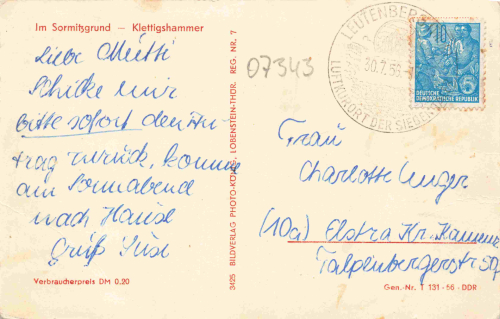 Im Sormitzgrund — Klettigshammer
Liebe Mutti
Schicke mir
bitte sofort den An-
trag zurück, komme
am Sonnabend
nach Hause
Gruß
Verbraucherpreis DM 0.20
3425 BILDVERLAG PHOTO-KÖNIG, LOBENSTEIN-THÜR. REG. NR. 7
07343
LEUTENBERG
30.7.56
LUFTKURORT DER SIEBEN
10
5
DEUTSCHE
DEMOKRATISCHE REPUBLIK
Frau
Charlotte Unger
(10a) Elstra Kr. Kamenz
Talpenbergerstr
Gen.-Nr. T 131-56-DDR